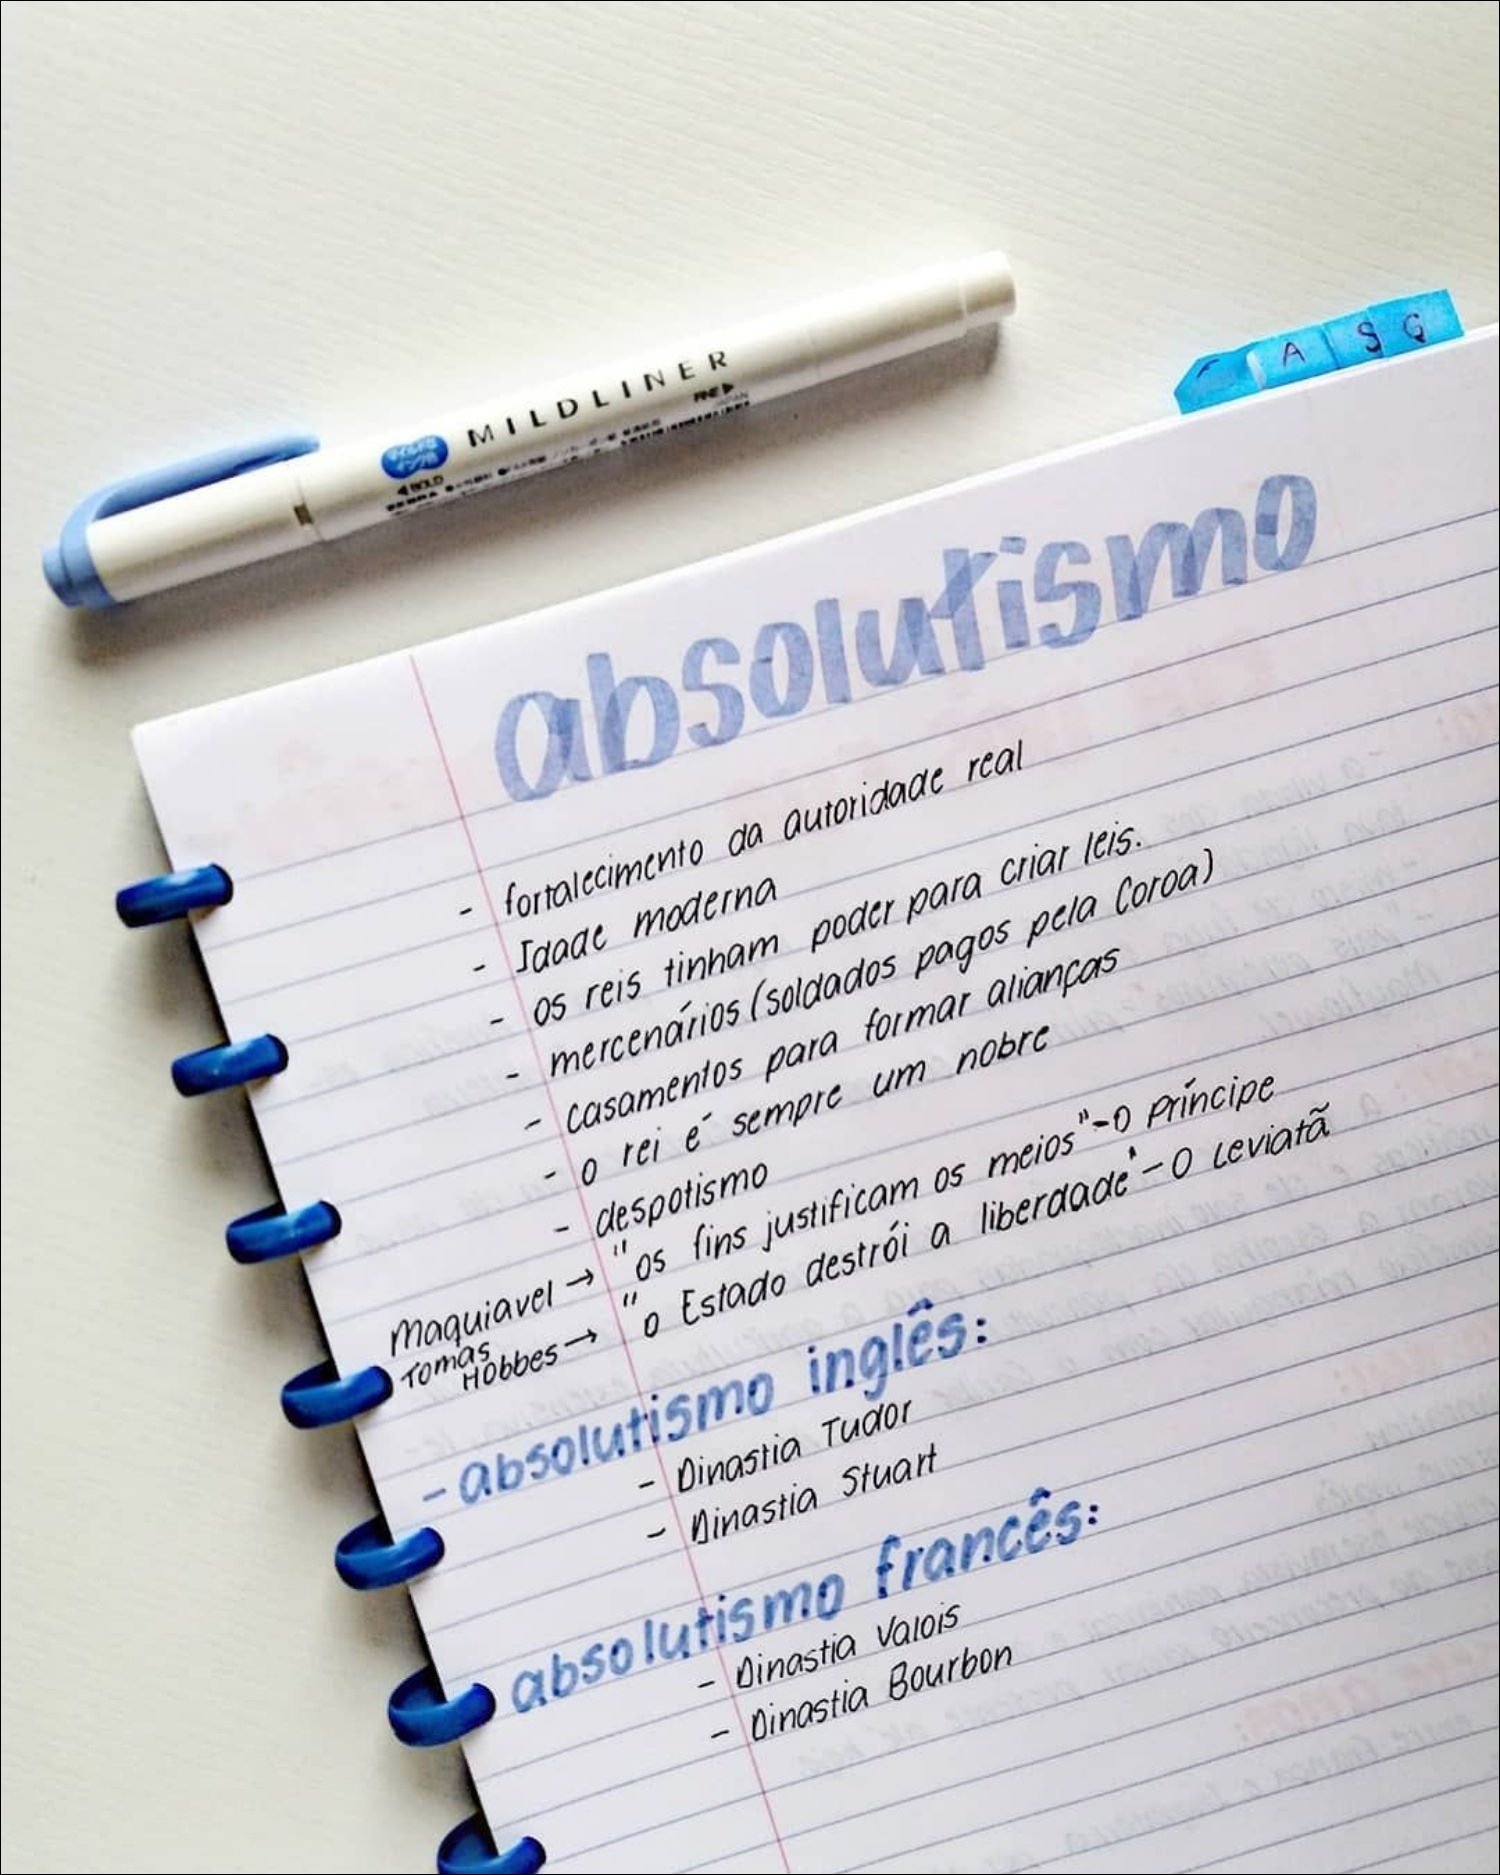 MILDLINER
マイルドな
インク色
◀BOLD
FINE▶
JAPAN
ZEBRA
A S G
absolutismo
- fortalecimento da autoridade real
- Idade moderna
- os reis tinham poder para criar leis.
- mercenários (soldados pagos pela Coroa)
- casamentos para formar alianças
- o rei é sempre um nobre
- despotismo
Maquiavel → "os fins justificam os meios"-O Príncipe
Tomas
Hobbes → "o Estado destrói a liberdade" - O Leviatã
- absolutismo inglês:
- Dinastia Tudor
- Dinastia Stuart
absolutismo francês:
- Dinastia Valois
- Dinastia Bourbon